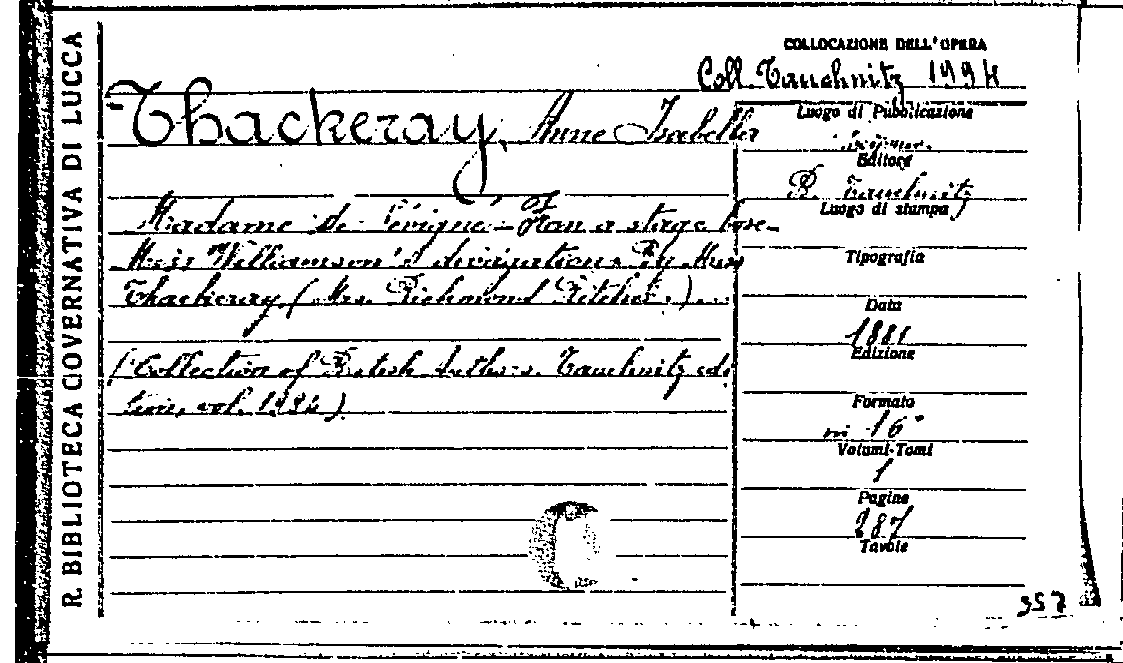 R. BIBLIOTECA GOVERNATIVA DI LUCCA
COLLOCAZIONE DELL'OPERA
Coll. Tauchnitz 1994
Thackeray, Anne Isabella
Madame de Sévigné - From a stage box -
Miss Williamson's divagations By Miss
Thackeray (Mrs. Richmond Ritchie.)
(Collection of British authors. Tauchnitz edi
tion, vol. 1994)
Luogo di Pubblicazione
Editore
B. Tauchnitz
Luogo di stampa
Tipografia
Data
1881
Edizione
Formato
in 16°
Volumi-Tomi
1
Pagine
287
Tavole
357